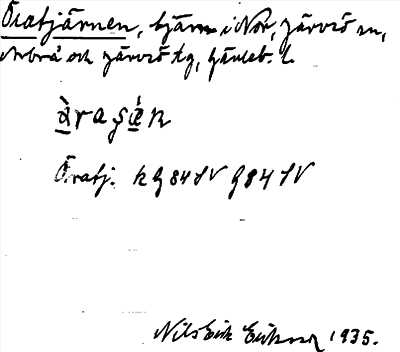 Öratjärnen, tjärn i Nor, Järvsö sn,
Arbrå och Järvsö tg, Gävleb. l.
Öratj. k G 84 SV G 84 SV
Nils Erik Eriksson 1935.